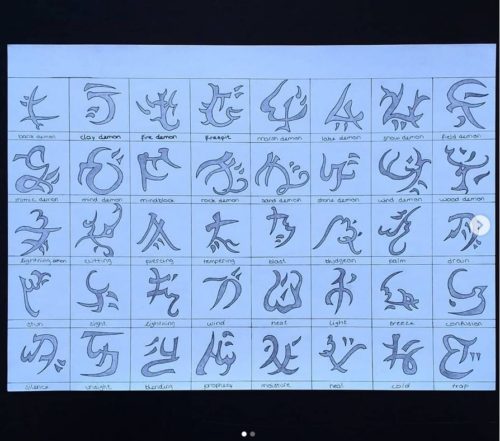 bank demon clay demon fire demon firespit marsh demon lake demon snow demon field demon
mimic demon mind demon mindblock rock demon sand demon stone demon wind demon wood demon
lightning demon cutting piercing tempering blast bludgeon palm drain
stun sight lightning wind heat light breeze confusion
silence unsight blending prophecy moisture heal cold trap